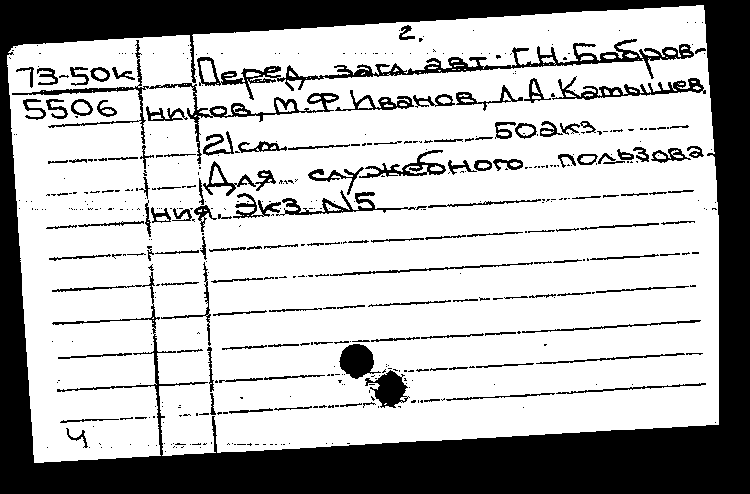 2.
73-50к Перед загл. авт. Г.Н. Бобров-
5506 ников, М.Ф. Иванов, Л.А. Камышев.
21см. 50экз.
Для служебного пользова-
ния. Экз. №5.
Ч